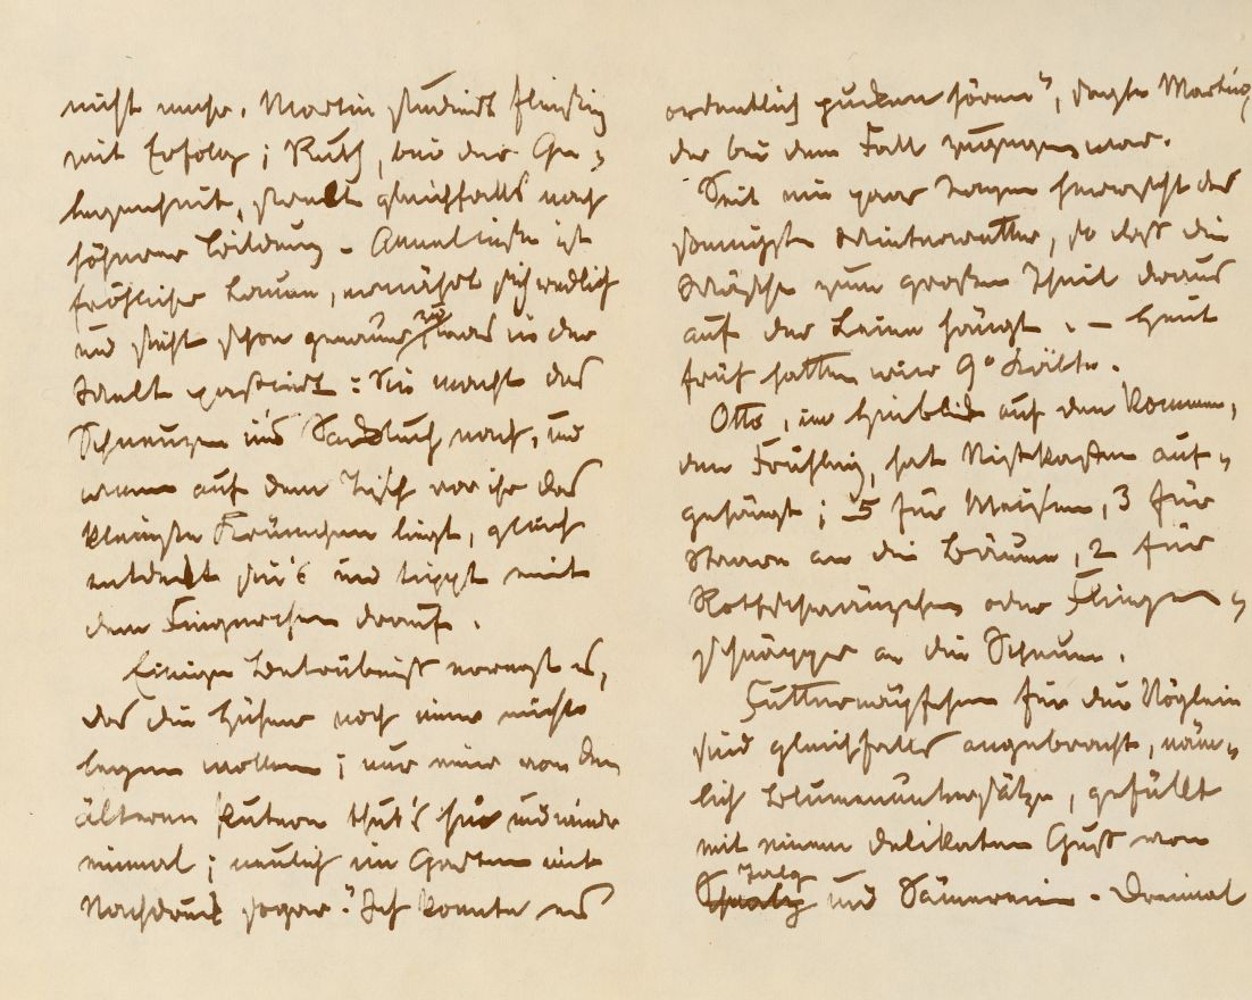 nicht mehr. Martin studiert fleißig
mit Erfolg; Ruth, bei der Ge-
legenheit, strebt gleichfalls nach
höherer Bildung. Anneliese ist
fröhlicher Launen, ernährt sich redlich
und sieht schon genauer zu, was in der
Welt passirt: Sie macht das
Schneuzen in's Sacktuch nach, und
wenn auf dem Tisch vor ihr das
kleinste Krümchen liegt, gleich
entdeckt sie's und tippt mit
dem Fingerchen drauf.
Einige Betrübniß erregt es,
daß die Hühner noch immer nicht
legen wollen; nur eine von den
älteren Puteren thut's hin und wieder
einmal; neulich im Garten mit
Nachdruck sogar. "Ich konnte es
ordentlich gucken hören", sagte Martin,
der bei dem Fall zugegen war.
Seit ein paar Tagen herrscht das
sonnigste Winterwetter, so daß die
Wäsche zum großen Theil draus
auf der Leine hängt. – Heut
früh hatten wir 9° Kälte.
Otto, im Hinblick auf den kommen-
den Frühling, hat Nistkasten auf-
gehängt; 5 für Meisen, 3 für
Staare an die Bäume, 2 für
Rothschwänzchen oder Fliegen-
schnäpper an die Scheune.
Futternäpfchen für die Vöglein
sind gleichfalls angebracht, näm-
lich Blumenuntersätze, gefüllt
mit einem delikaten Guß von
Talg und Sämereien. Dreimal